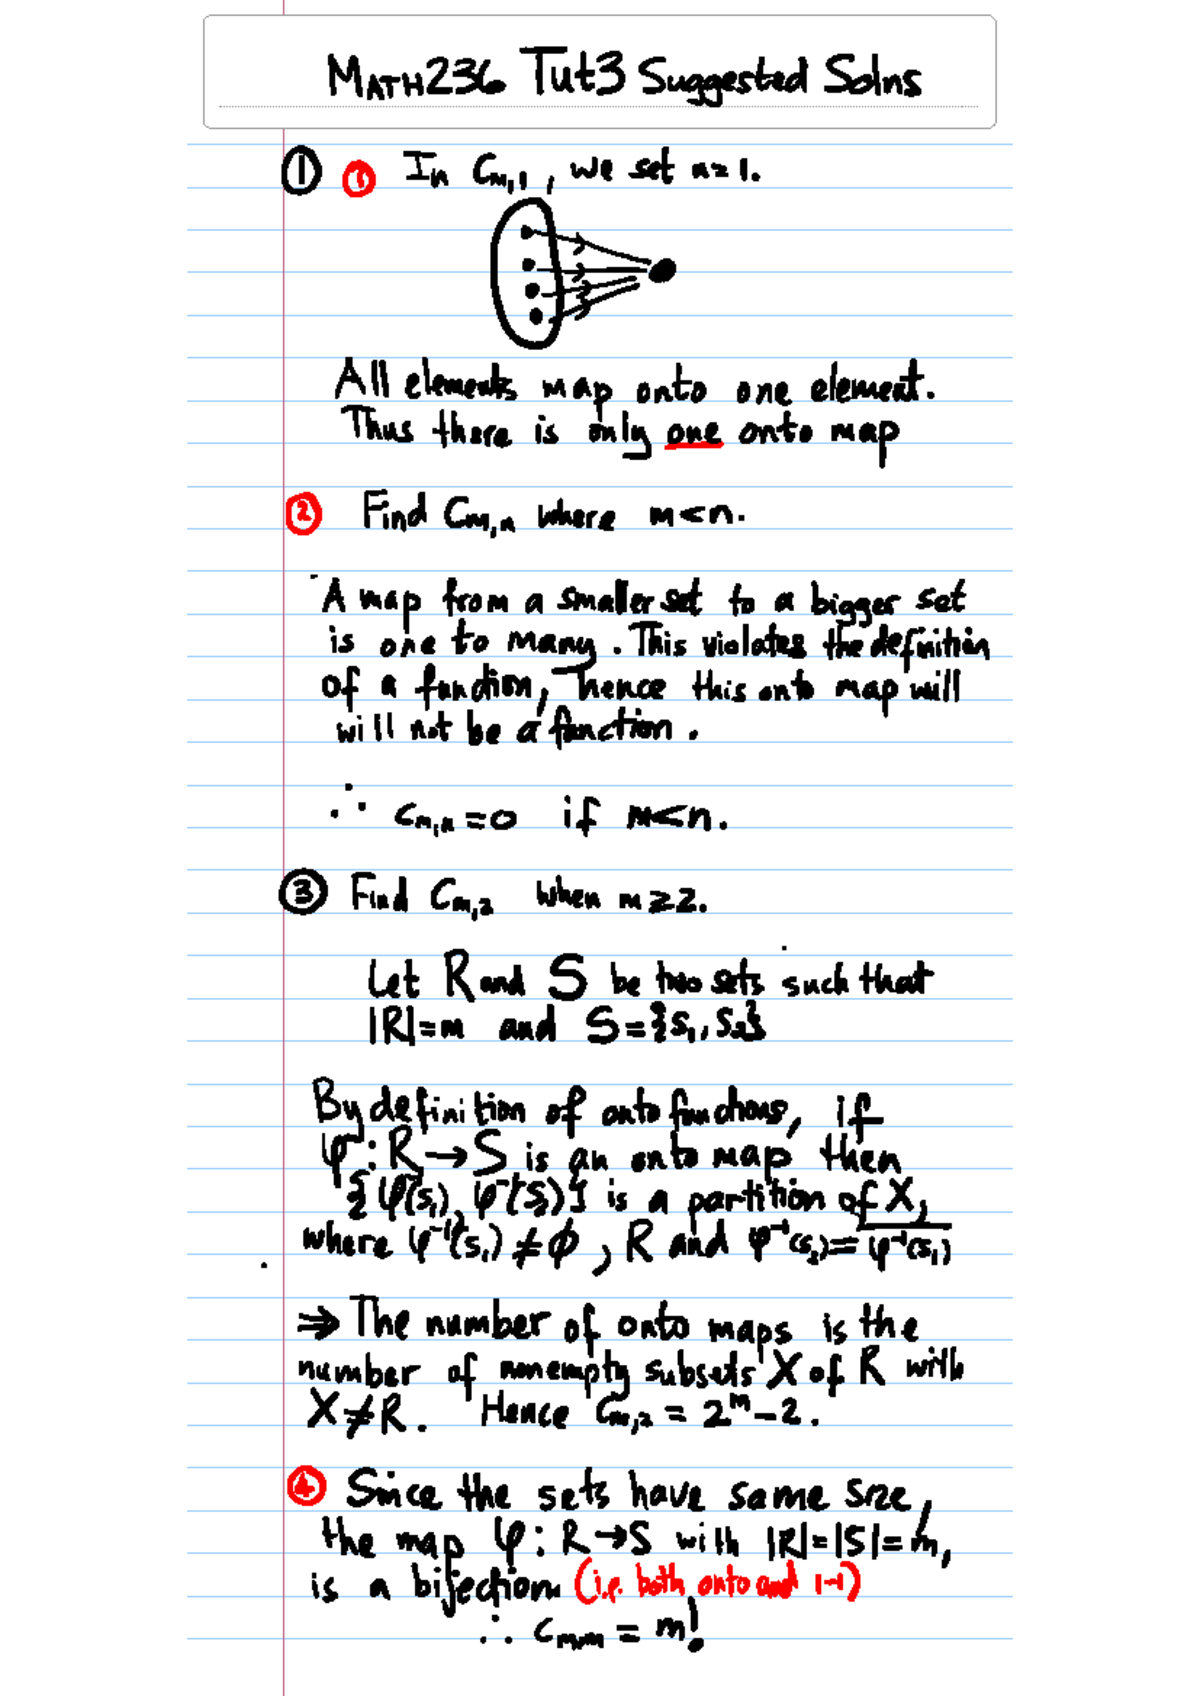 MATH236 Tut3 Suggested Solns
① ① In Cm,1, we set n=1.
All elements map onto one element.
Thus there is only one onto map
② Find Cm,n where m<n.
A map from a smaller set to a bigger set
is one to many. This violates the definition
of a function, hence this onto map will
will not be a function.
∴ Cm,n=0 if m<n.
③ Find Cm,2 when m≥2.
Let R and S be two sets such that
|R|=m and S={s₁,s₂}
By definition of onto functions, if
φ:R→S is an onto map then
{φ⁻¹(s₁), φ⁻¹(s₂)} is a partition of X,
where φ⁻¹(s₁)≠∅, R and φ⁻¹(s₂)=φ⁻¹(s₁)
⇒ The number of onto maps is the
number of nonempty subsets X of R with
X≠R. Hence Cm,2 = 2ᵐ-2.
④ Since the sets have same size,
the map φ:R→S with |R|=|S|=m,
is a bijection (i.e. both onto and 1-1)
∴ Cm,m = m!